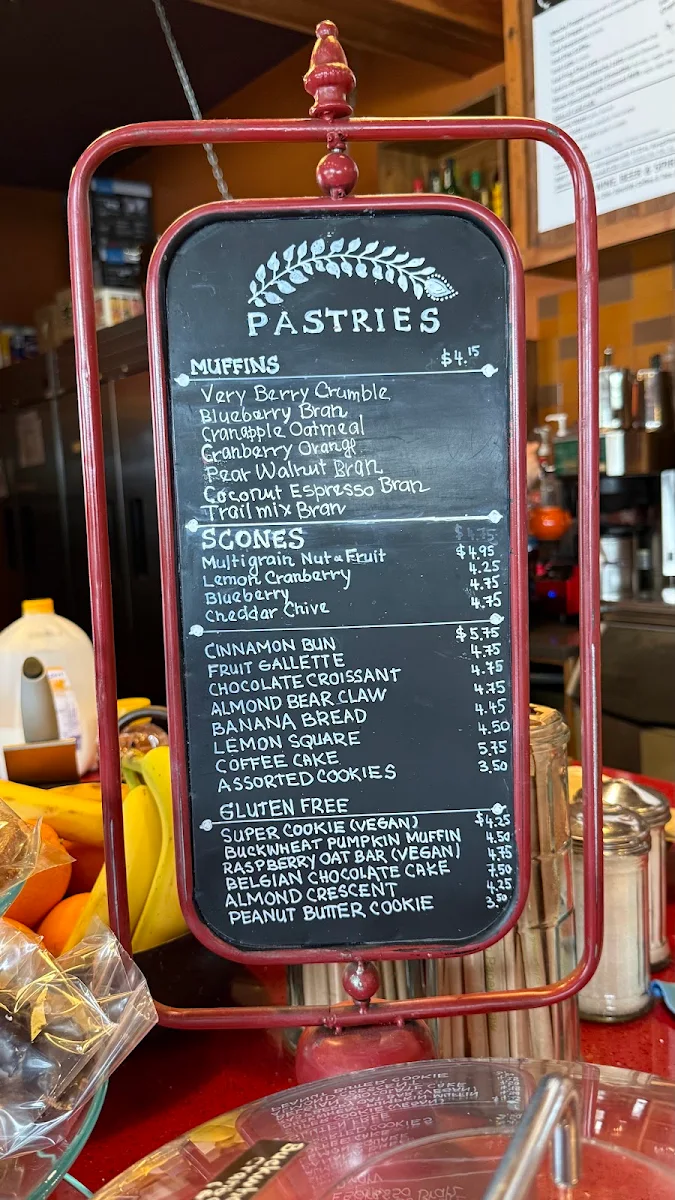 PASTRIES
MUFFINS $4.15
Very Berry Crumble
Blueberry Bran
Cranapple Oatmeal
Cranberry Orange
Pear Walnut Bran
Coconut Espresso Bran
Trail mix Bran
SCONES $4.75
Multigrain Nut & Fruit $4.95
Lemon Cranberry 4.25
Blueberry 4.75
Cheddar Chive 4.75
CINNAMON BUN $5.75
FRUIT GALLETTE 4.75
CHOCOLATE CROISSANT 4.75
ALMOND BEAR CLAW 4.75
BANANA BREAD 4.45
LEMON SQUARE 4.50
COFFEE CAKE 5.75
ASSORTED COOKIES 3.50
GLUTEN FREE
SUPER COOKIE (VEGAN) $4.25
BUCKWHEAT PUMPKIN MUFFIN 4.50
RASPBERRY OAT BAR (VEGAN) 4.75
BELGIAN CHOCOLATE CAKE 7.50
ALMOND CRESCENT 4.25
PEANUT BUTTER COOKIE 3.50
BEER & SPIR